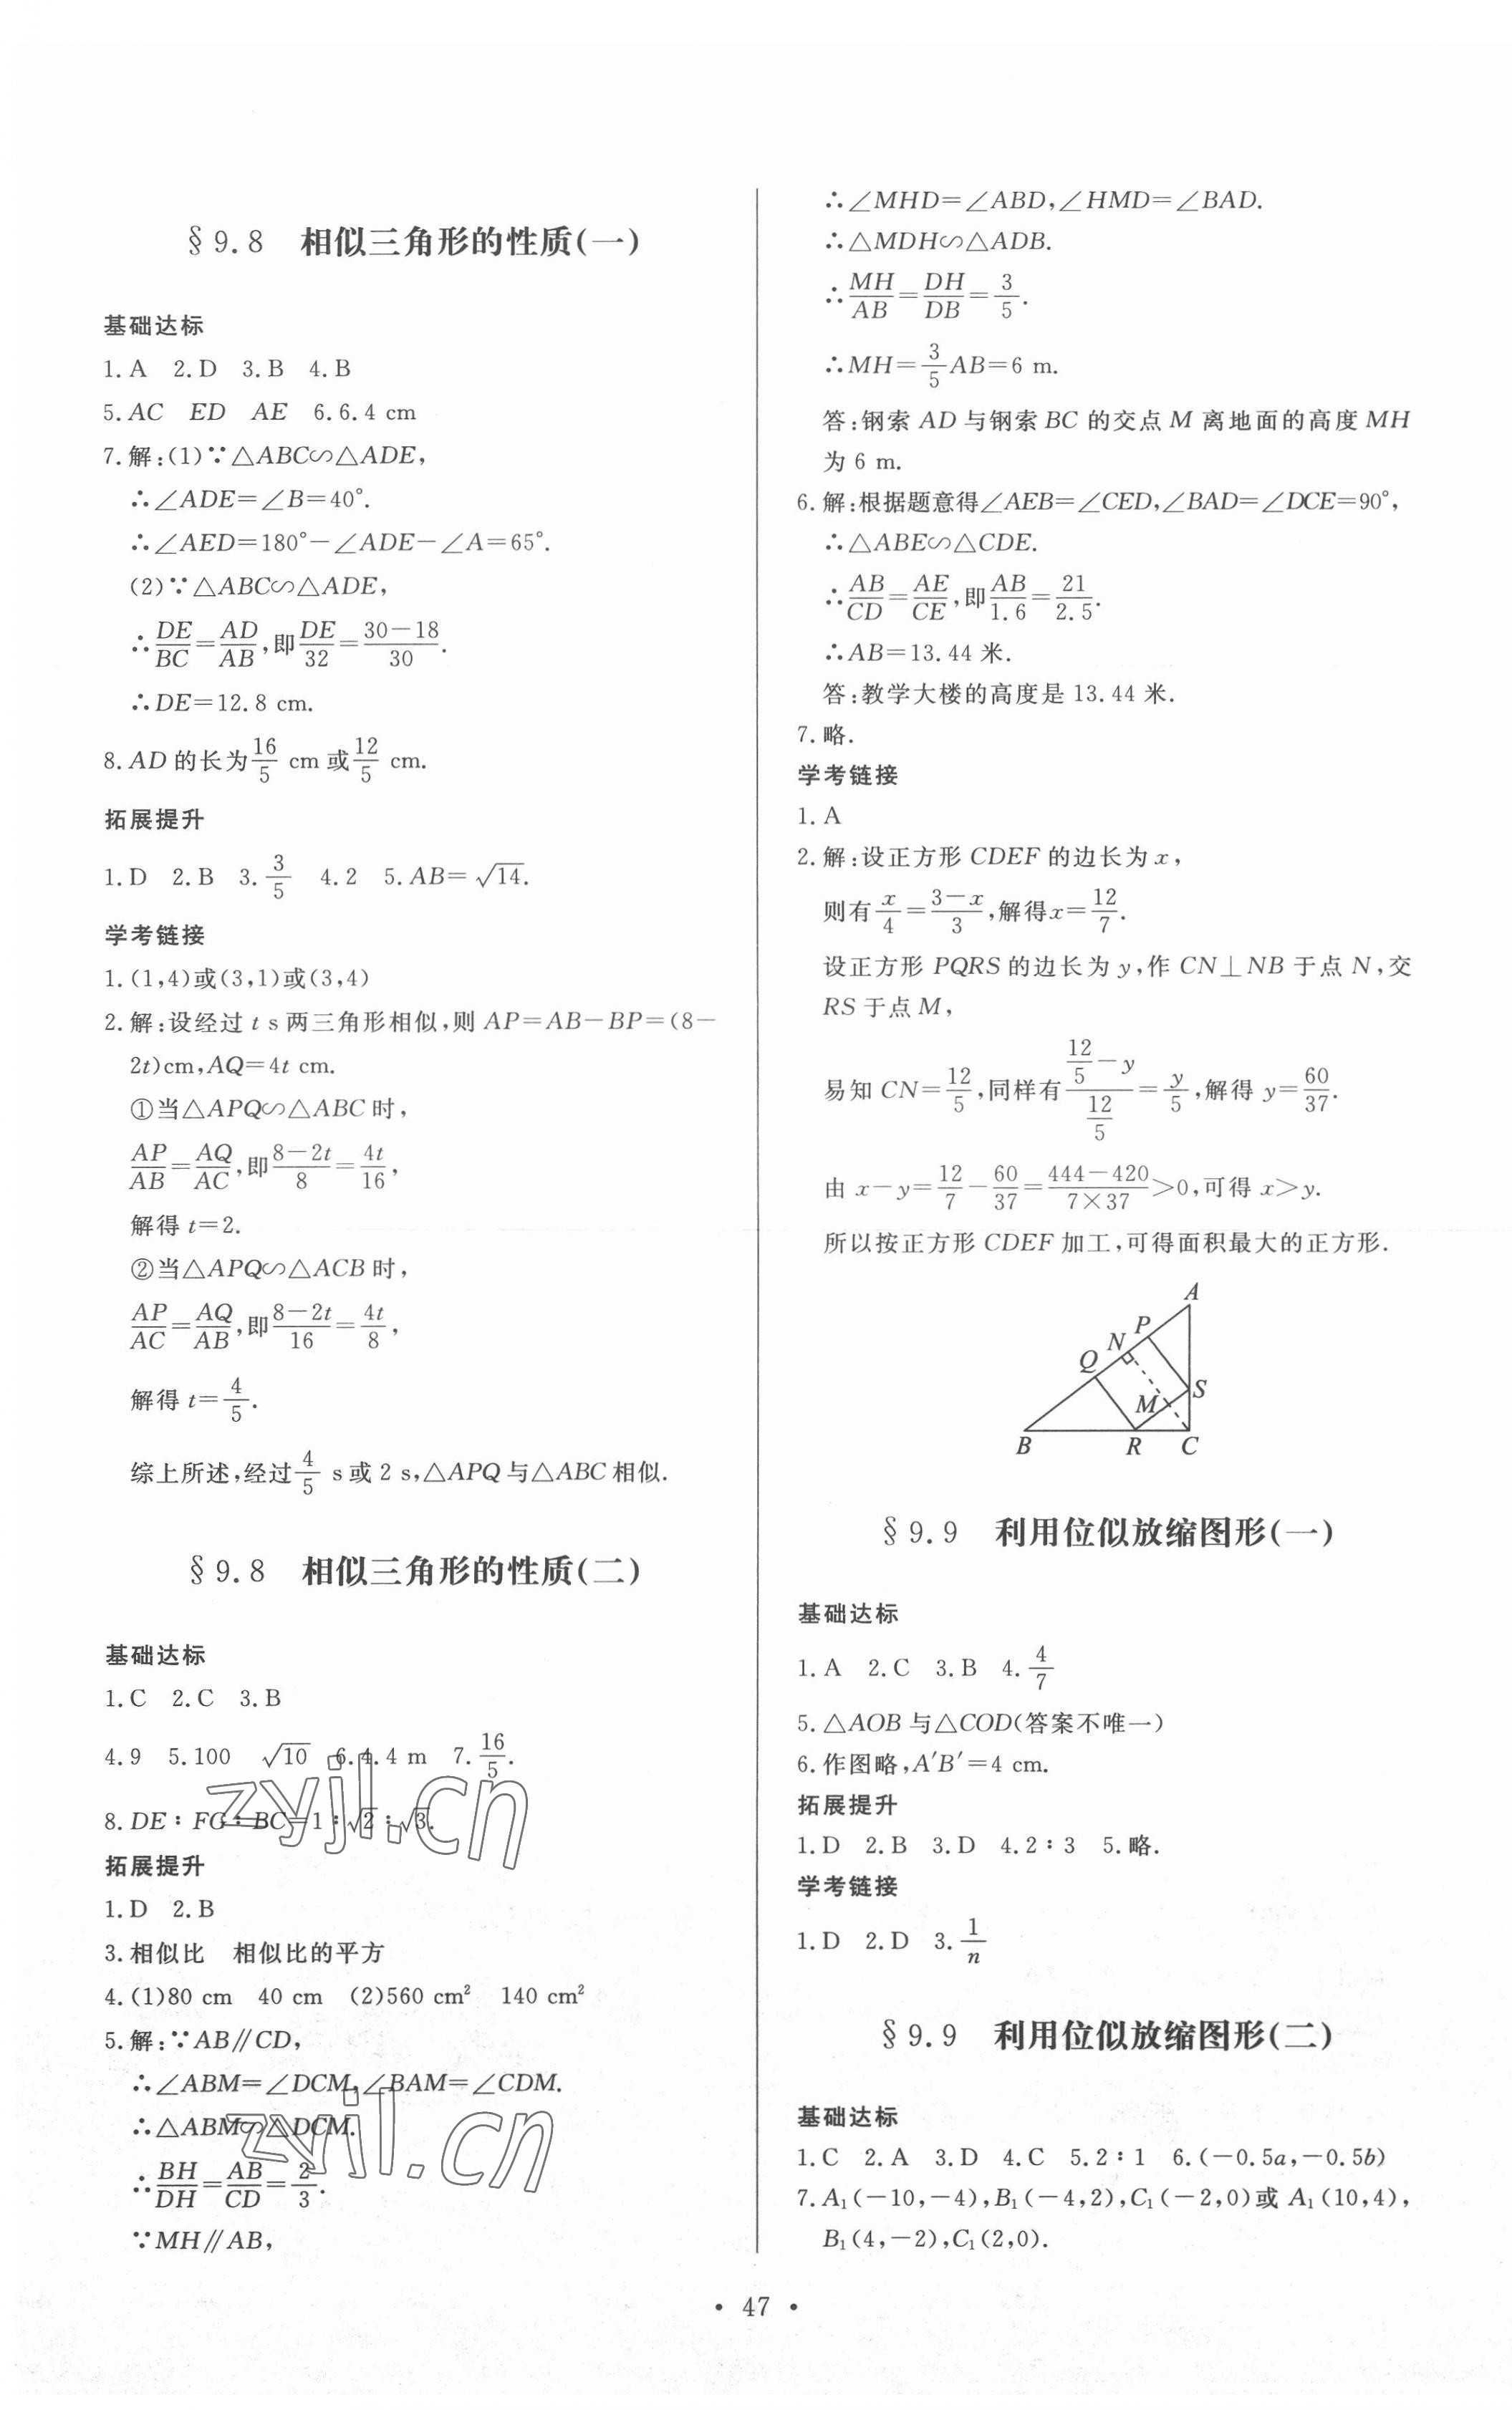 §9.8 相似三角形的性质(一)
基础达标
1.A 2.D 3.B 4.B
5.AC ED AE 6.6.4 cm
7.解:(1)∵△ABC∽△ADE,
∴∠ADE=∠B=40°.
∴∠AED=180°-∠ADE-∠A=65°.
(2)∵△ABC∽△ADE,
∴DE/BC=AD/AB,即DE/32=(30-18)/30.
∴DE=12.8 cm.
8.AD的长为16/5 cm或12/5 cm.
拓展提升
1.D 2.B 3.3/5 4.2 5.AB=√14.
学考链接
1.(1,4)或(3,1)或(3,4)
2.解:设经过t s两三角形相似,则AP=AB-BP=(8-
2t)cm,AQ=4t cm.
①当△APQ∽△ABC时,
AP/AB=AQ/AC,即(8-2t)/8=4t/16,
解得t=2.
②当△APQ∽△ACB时,
AP/AC=AQ/AB,即(8-2t)/16=4t/8,
解得t=4/5.
综上所述,经过4/5 s或2 s,△APQ与△ABC相似.
§9.8 相似三角形的性质(二)
基础达标
1.C 2.C 3.B
4.9 5.100 √10 6.4.4 m 7.16/5.
8.DE∶FG∶BC=1∶√2∶√3.
zyjl.cn
拓展提升
1.D 2.B
3.相似比 相似比的平方
4.(1)80 cm 40 cm (2)560 cm² 140 cm²
5.解:∵AB∥CD,
∴∠ABM=∠DCM,∠BAM=∠CDM.
∴△ABM∽△DCM.
zyjl.cn
∴BH/DH=AB/CD=2/3.
∵MH∥AB,
∴∠MHD=∠ABD,∠HMD=∠BAD.
∴△MDH∽△ADB.
∴MH/AB=DH/DB=3/5.
∴MH=3/5AB=6 m.
答:钢索AD与钢索BC的交点M离地面的高度MH
为6 m.
6.解:根据题意得∠AEB=∠CED,∠BAD=∠DCE=90°,
∴△ABE∽△CDE.
∴AB/CD=AE/CE,即AB/1.6=21/2.5.
∴AB=13.44米.
答:教学大楼的高度是13.44米.
7.略.
学考链接
1.A
2.解:设正方形CDEF的边长为x,
则有x/4=(3-x)/3,解得x=12/7.
设正方形PQRS的边长为y,作CN⊥NB于点N,交
RS于点M,
易知CN=12/5,同样有(12/5-y)/(12/5)=y/5,解得y=60/37.
由x-y=12/7-60/37=(444-420)/(7×37)>0,可得x>y.
所以按正方形CDEF加工,可得面积最大的正方形.
A
P
N
Q
S
M
B R C
§9.9 利用位似放缩图形(一)
基础达标
1.A 2.C 3.B 4.4/7
5.△AOB与△COD(答案不唯一)
6.作图略,A′B′=4 cm.
拓展提升
1.D 2.B 3.D 4.2∶3 5.略.
学考链接
1.D 2.D 3.1/n
§9.9 利用位似放缩图形(二)
基础达标
1.C 2.A 3.D 4.C 5.2∶1 6.(-0.5a,-0.5b)
7.A₁(-10,-4),B₁(-4,2),C₁(-2,0)或A₁(10,4),
B₁(4,-2),C₁(2,0).
• 47 •